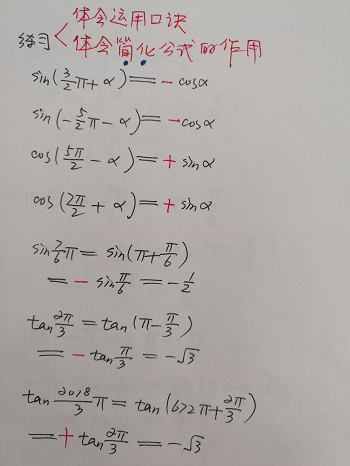 练习 体会运用口诀
体会简化公式的作用
sin(3/2π+α)=-cosα
sin(-5/2π-α)=-cosα
cos(5π/2-α)=+sinα
cos(7π/2+α)=+sinα
sin7/6π=sin(π+π/6)
=-sinπ/6=-1/2
tan2π/3=tan(π-π/3)
=-tanπ/3=-√3
tan2018/3π=tan(672π+2π/3)
=+tan2π/3=-√3